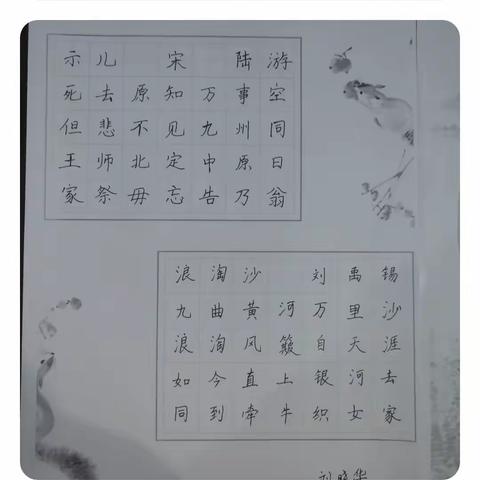 示儿 宋 陆游
死去原知万事空
但悲不见九州同
王师北定中原日
家祭毋忘告乃翁
浪淘沙 刘禹锡
九曲黄河万里沙
浪淘风簸自天涯
如今直上银河去
同到牵牛织女家
刘晓华